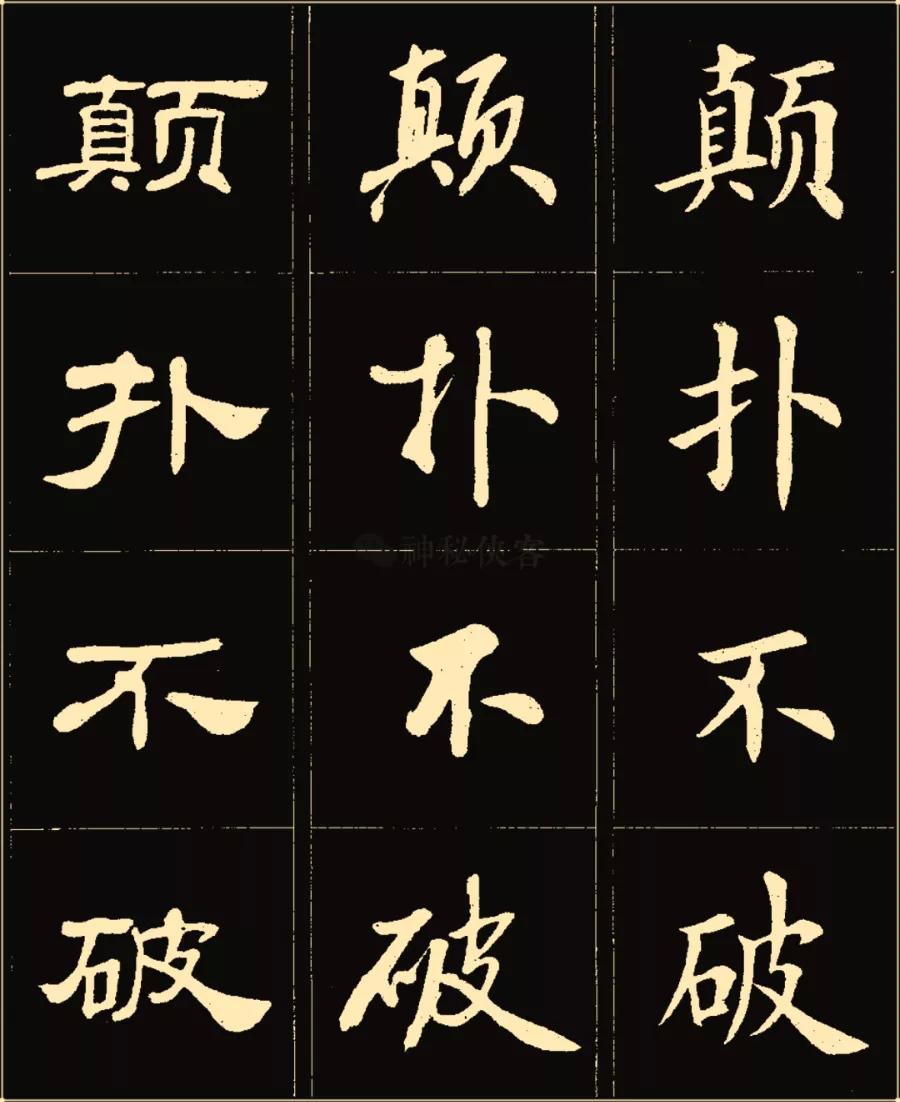 颠 颠 颠
扑 扑 扑
不 不 不
破 破 破
神秘侠客